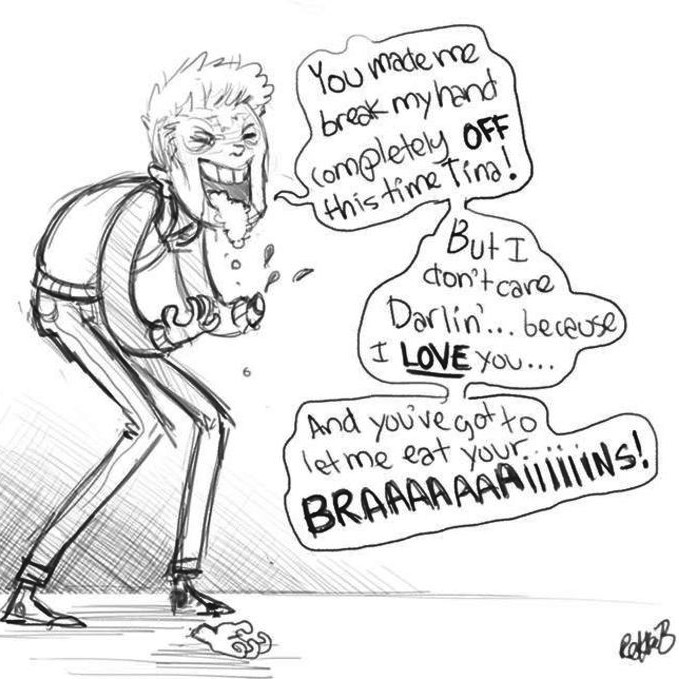 You made me
break my hand
completely OFF
this time Tina!
But I
don't care
Darlin'... because
I LOVE you...
And you've got to
let me eat your......
BRAAAAAAAIIIIIINS!